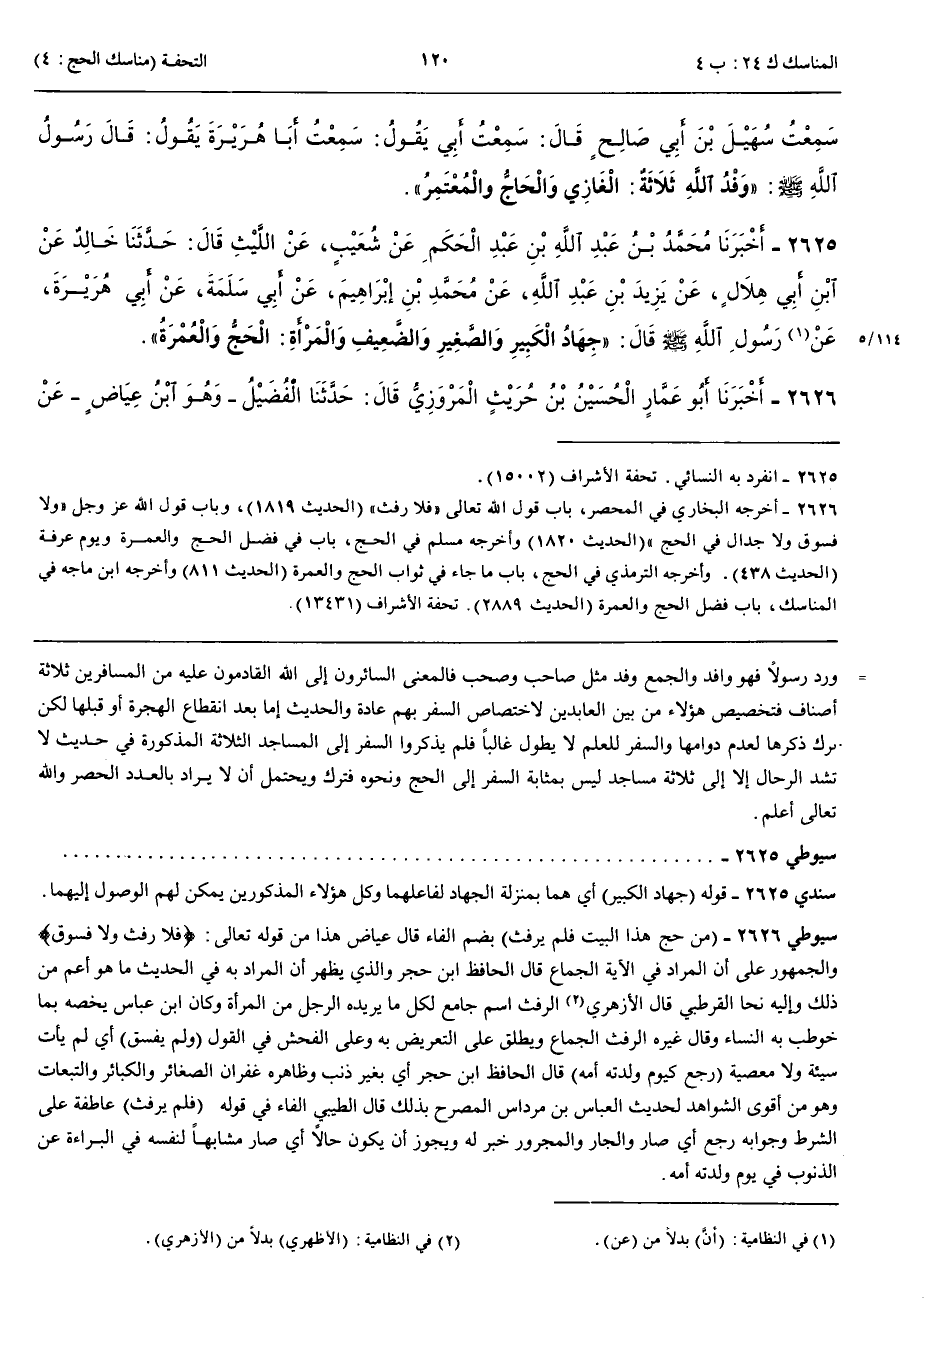 المناسك ك ٢٤ : ب ٤ ١٢٠ التحفة (مناسك الحج : ٤)
سَمِعْتُ سُهَيْلَ بْنَ أَبِي صَالِحٍ قَالَ : سَمِعْتُ أَبِي يَقُولُ : سَمِعْتُ أَبَا هُرَيْرَةَ يَقُولُ : قَالَ رَسُولُ
ٱللَّهِ ﷺ : «وَفْدُ ٱللَّهِ ثَلَاثَةٌ : الْغَازِي وَالْحَاجُّ والْمُعْتَمِرُ» .
٢٦٢٥ ـ أَخْبَرَنَا مُحَمَّدُ بْنُ عَبْدِ ٱللَّهِ بْنِ عَبْدِ الْحَكَمِ عَنْ شُعَيْبٍ، عَنِ اللَّيْثِ قَالَ : حَدَّثَنَا خَالِدٌ عَنْ
ٱبْنِ أَبِي هِلَالٍ، عَنْ يَزِيدَ بْنِ عَبْدِ ٱللَّهِ، عَنْ مُحَمَّدِ بْنِ إِبْرَاهِيمَ، عَنْ أَبِي سَلَمَةَ، عَنْ أَبِي هُرَيْرَةَ،
عَنْ(١) رَسُولِ ٱللَّهِ ﷺ قَالَ : «جِهَادُ الْكَبِيرِ وَالصَّغِيرِ وَالضَّعِيفِ وَالْمَرْأَةِ : الْحَجُّ وَالْعُمْرَةُ» . ٥/١١٤
٢٦٢٦ ـ أَخْبَرَنَا أَبُو عَمَّارٍ الْحُسَيْنُ بْنُ حُرَيْثٍ الْمَرْوَزِيُّ قَالَ : حَدَّثَنَا الْفُضَيْلُ ـ وَهُوَ ٱبْنُ عِيَاضٍ ـ عَنْ
٢٦٢٥ ـ انفرد به النسائي . تحفة الأشراف (١٥٠٠٢) .
٢٦٢٦ ـ أخرجه البخاري في المحصر، باب قول الله تعالى «فلا رفث» (الحديث ١٨١٩)، وباب قول الله عز وجل «ولا
فسوق ولا جدال في الحج »(الحديث ١٨٢٠) وأخرجه مسلم في الحج، باب في فضل الحج والعمرة ويوم عرفة
(الحديث ٤٣٨). وأخرجه الترمذي في الحج، باب ما جاء في ثواب الحج والعمرة (الحديث ٨١١) وأخرجه ابن ماجه في
المناسك، باب فضل الحج والعمرة (الحديث ٢٨٨٩). تحفة الأشراف (١٣٤٣١).
= ورد رسولاً فهو وافد والجمع وفد مثل صاحب وصحب فالمعنى السائرون إلى الله القادمون عليه من المسافرين ثلاثة
أصناف فتخصيص هؤلاء من بين العابدين لاختصاص السفر بهم عادة والحديث إما بعد انقطاع الهجرة أو قبلها لكن
ترك ذكرها لعدم دوامها والسفر للعلم لا يطول غالباً فلم يذكروا السفر إلى المساجد الثلاثة المذكورة في حديث لا
تشد الرحال إلا إلى ثلاثة مساجد ليس بمثابة السفر إلى الحج ونحوه فترك ويحتمل أن لا يراد بالعدد الحصر والله
تعالى أعلم .
سيوطي ٢٦٢٥ ـ ..........................................................
سندي ٢٦٢٥ ـ قوله (جهاد الكبير) أي هما بمنزلة الجهاد لفاعلهما وكل هؤلاء المذكورين يمكن لهم الوصول إليهما .
سيوطي ٢٦٢٦ ـ (من حج هذا البيت فلم يرفث) بضم الفاء قال عياض هذا من قوله تعالى : ﴿فلا رفث ولا فسوق﴾
والجمهور على أن المراد في الآية الجماع قال الحافظ ابن حجر والذي يظهر أن المراد به في الحديث ما هو أعم من
ذلك وإليه نحا القرطبي قال الأزهري(٢) الرفث اسم جامع لكل ما يريده الرجل من المرأة وكان ابن عباس يخصه بما
خوطب به النساء وقال غيره الرفث الجماع ويطلق على التعريض به وعلى الفحش في القول (ولم يفسق) أي لم يأت
سيئة ولا معصية (رجع كيوم ولدته أمه) قال الحافظ ابن حجر أي بغير ذنب وظاهره غفران الصغائر والكبائر والتبعات
وهو من أقوى الشواهد لحديث العباس بن مرداس المصرح بذلك قال الطيبي الفاء في قوله (فلم يرفث) عاطفة على
الشرط وجوابه رجع أي صار والجار والمجرور خبر له ويجوز أن يكون حالاً أي صار مشابهاً لنفسه في البراءة عن
الذنوب في يوم ولدته أمه .
(١) في النظامية : (أنَّ) بدلاً من (عن) . (٢) في النظامية : (الأظهري) بدلاً من (الأزهري) .